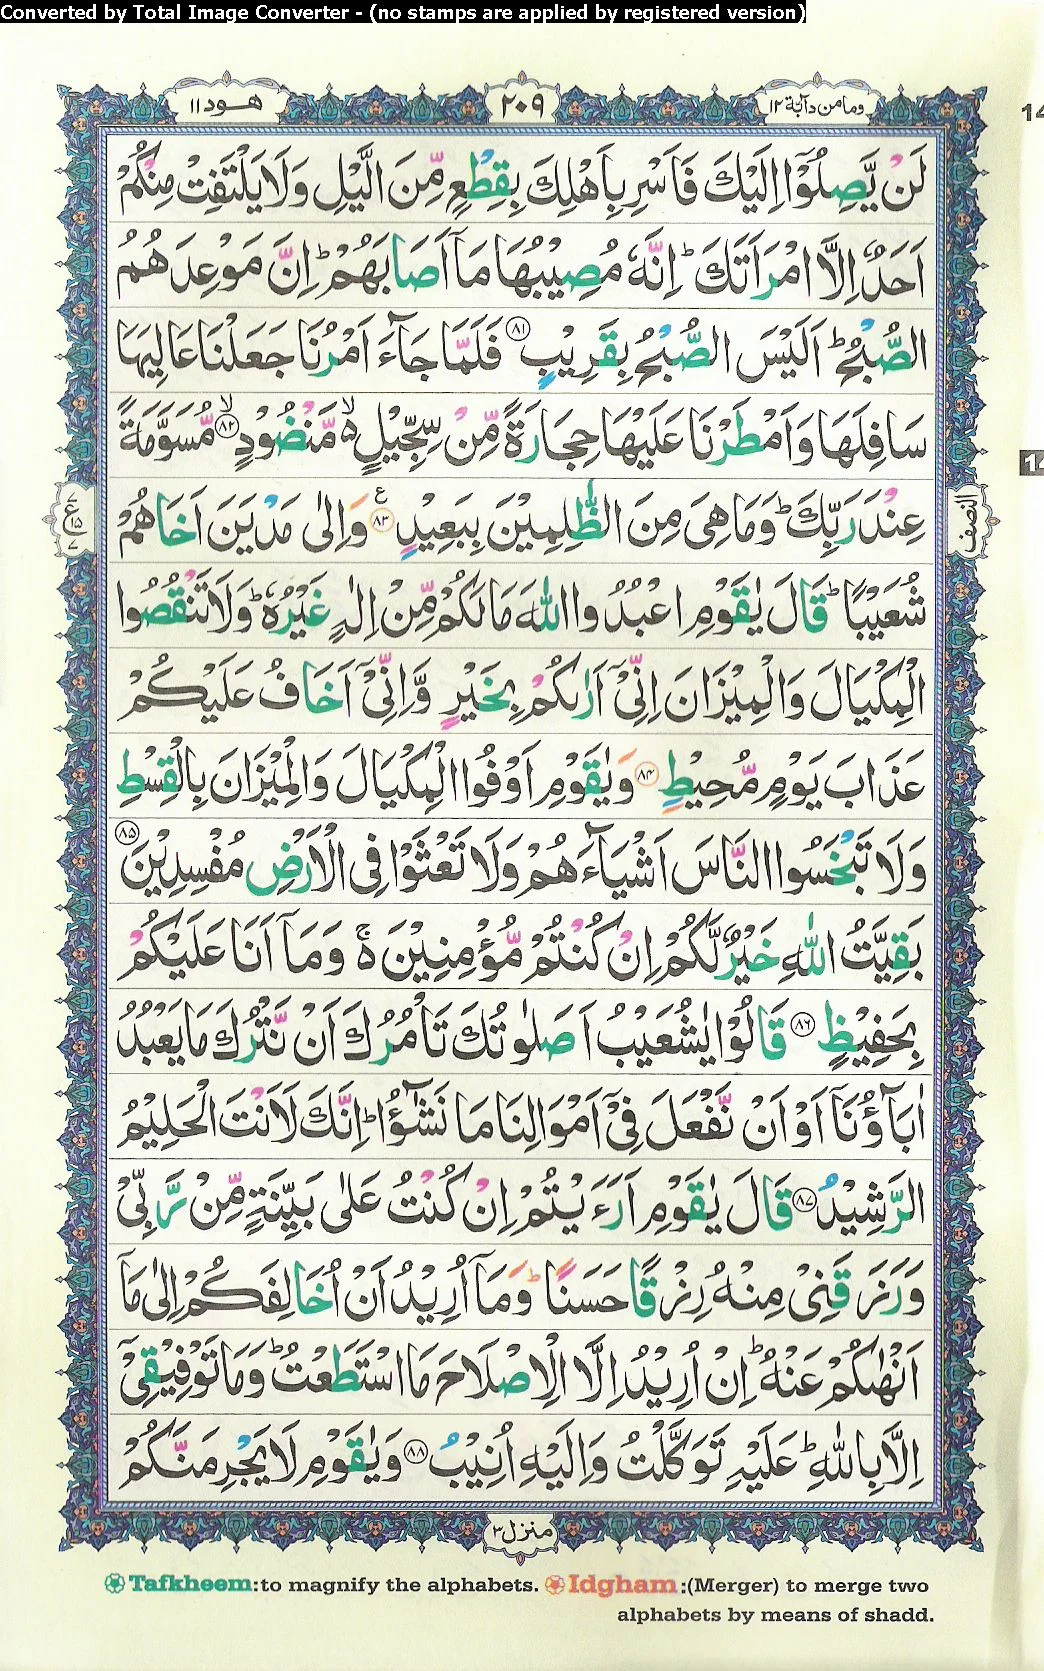 Converted by Total Image Converter - (no stamps are applied by registered version)
وما من دآبة ١٢
٢٠٩
هود ١١
لَنْ يَّصِلُوْۤا اِلَيْكَ فَاَسْرِ بِاَهْلِكَ بِقِطْعٍ مِّنَ الَّيْلِ وَلَا يَلْتَفِتْ مِنْكُمْ
اَحَدٌ اِلَّا امْرَاَتَكَ ؕ اِنَّهٗ مُصِيْبُهَا مَاۤ اَصَابَهُمْ ؕ اِنَّ مَوْعِدَهُمُ
الصُّبْحُ ؕ اَلَيْسَ الصُّبْحُ بِقَرِيْبٍ ٨١ فَلَمَّا جَآءَ اَمْرُنَا جَعَلْنَا عَالِيَهَا
سَافِلَهَا وَاَمْطَرْنَا عَلَيْهَا حِجَارَةً مِّنْ سِجِّيْلٍ ۙ۬ مَّنْضُوْدٍ ۙ ٨٢ مُّسَوَّمَةً
عِنْدَ رَبِّكَ ؕ وَمَا هِىَ مِنَ الظّٰلِمِيْنَ بِبَعِيْدٍ ٨٣ ع وَاِلٰى مَدْيَنَ اَخَاهُمْ
النصف
ع ١٥
٧
شُعَيْبًا ؕ قَالَ يٰقَوْمِ اعْبُدُوا اللّٰهَ مَا لَكُمْ مِّنْ اِلٰهٍ غَيْرُهٗ ؕ وَلَا تَنْقُصُوا
الْمِكْيَالَ وَالْمِيْزَانَ اِنِّىْۤ اَرٰىكُمْ بِخَيْرٍ وَّاِنِّىْۤ اَخَافُ عَلَيْكُمْ
عَذَابَ يَوْمٍ مُّحِيْطٍ ٨٤ وَيٰقَوْمِ اَوْفُوا الْمِكْيَالَ وَالْمِيْزَانَ بِالْقِسْطِ
وَلَا تَبْخَسُوا النَّاسَ اَشْيَآءَهُمْ وَلَا تَعْثَوْا فِى الْاَرْضِ مُفْسِدِيْنَ ٨٥
بَقِيَّتُ اللّٰهِ خَيْرٌ لَّكُمْ اِنْ كُنْتُمْ مُّؤْمِنِيْنَ ۚ۬ وَمَاۤ اَنَا عَلَيْكُمْ
بِحَفِيْظٍ ٨٦ قَالُوْا يٰشُعَيْبُ اَصَلٰوتُكَ تَاْمُرُكَ اَنْ نَّتْرُكَ مَا يَعْبُدُ
اٰبَآؤُنَاۤ اَوْ اَنْ نَّفْعَلَ فِىْۤ اَمْوَالِنَا مَا نَشٰٓؤُا ؕ اِنَّكَ لَاَنْتَ الْحَلِيْمُ
الرَّشِيْدُ ٨٧ قَالَ يٰقَوْمِ اَرَءَيْتُمْ اِنْ كُنْتُ عَلٰى بَيِّنَةٍ مِّنْ رَّبِّىْ
وَرَزَقَنِىْ مِنْهُ رِزْقًا حَسَنًا ؕ وَمَاۤ اُرِيْدُ اَنْ اُخَالِفَكُمْ اِلٰى مَاۤ
اَنْهٰىكُمْ عَنْهُ ؕ اِنْ اُرِيْدُ اِلَّا الْاِصْلَاحَ مَا اسْتَطَعْتُ ؕ وَمَا تَوْفِيْقِىْۤ
اِلَّا بِاللّٰهِ ؕ عَلَيْهِ تَوَكَّلْتُ وَاِلَيْهِ اُنِيْبُ ٨٨ وَيٰقَوْمِ لَا يَجْرِمَنَّكُمْ
منزل ٣
Tafkheem:to magnify the alphabets. Idgham:(Merger) to merge two
alphabets by means of shadd.